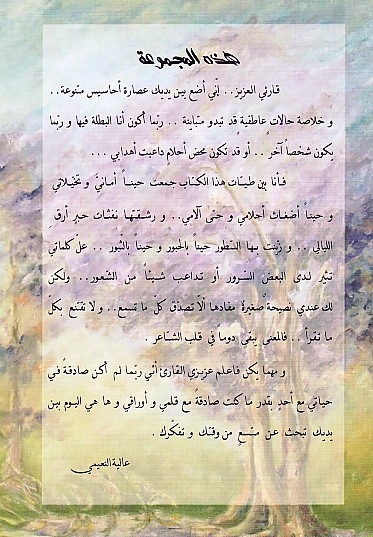 هذه المجموعة
قارئي العزيز.. إنّي أضع بين يديك عصارة أحاسيس متنوعة..
و خلاصة حالات عاطفية قد تبدو متباينة .. ربّما أكون أنا البطلة فيها و ربّما
يكون شخصاً آخر .. أو قد تكون محض أحلام داعبت أهدابي ...
فأنا بين طيّات هذا الكتاب جمعت حيناً أمانيّ و تخيّلاتي
و حيناً أضغاث أحلامي و حتى آلامي.. و رشقتها نفثات حبرِ أرقِ
الليالي .. و زيّنت بها السّطور حيناً بالحبور و حيناً بالثّبور .. علّ كلماتي
تثير لدى البعض السّرور أو تداعب شيئاً من الشّعور.. ولكن
لك عندي نصيحةٌ صغيرةٌ مفادها ألاّ تصدّق كلّ ما تسمع.. و لا تقتنع بكلّ
ما تقرأ .. فالمعنى يبقى دوماً في قلب الشّاعر .
و مهما يكن فاعلم عزيزي القارئ أنّي ربّما لم أكن صادقةً في
حياتي مع أحدٍ بقدر ما كنت صادقةً مع قلمي و أوراقي و ها هي اليوم بين
يديك تبحث عن متّسعٍ من وقتك و تفكّرك .
عالية النعيمي